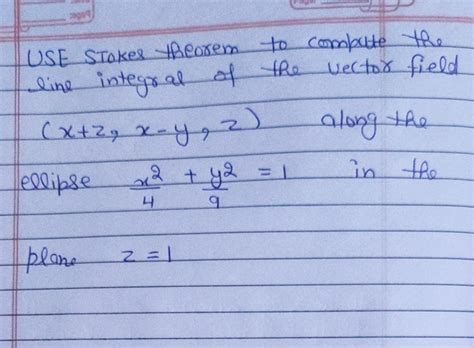 USE Stokes theorem to compute the
line integral of the vector field
(x+z, x-y, z) along the
ellipse x²/4 + y²/9 = 1 in the
plane z=1